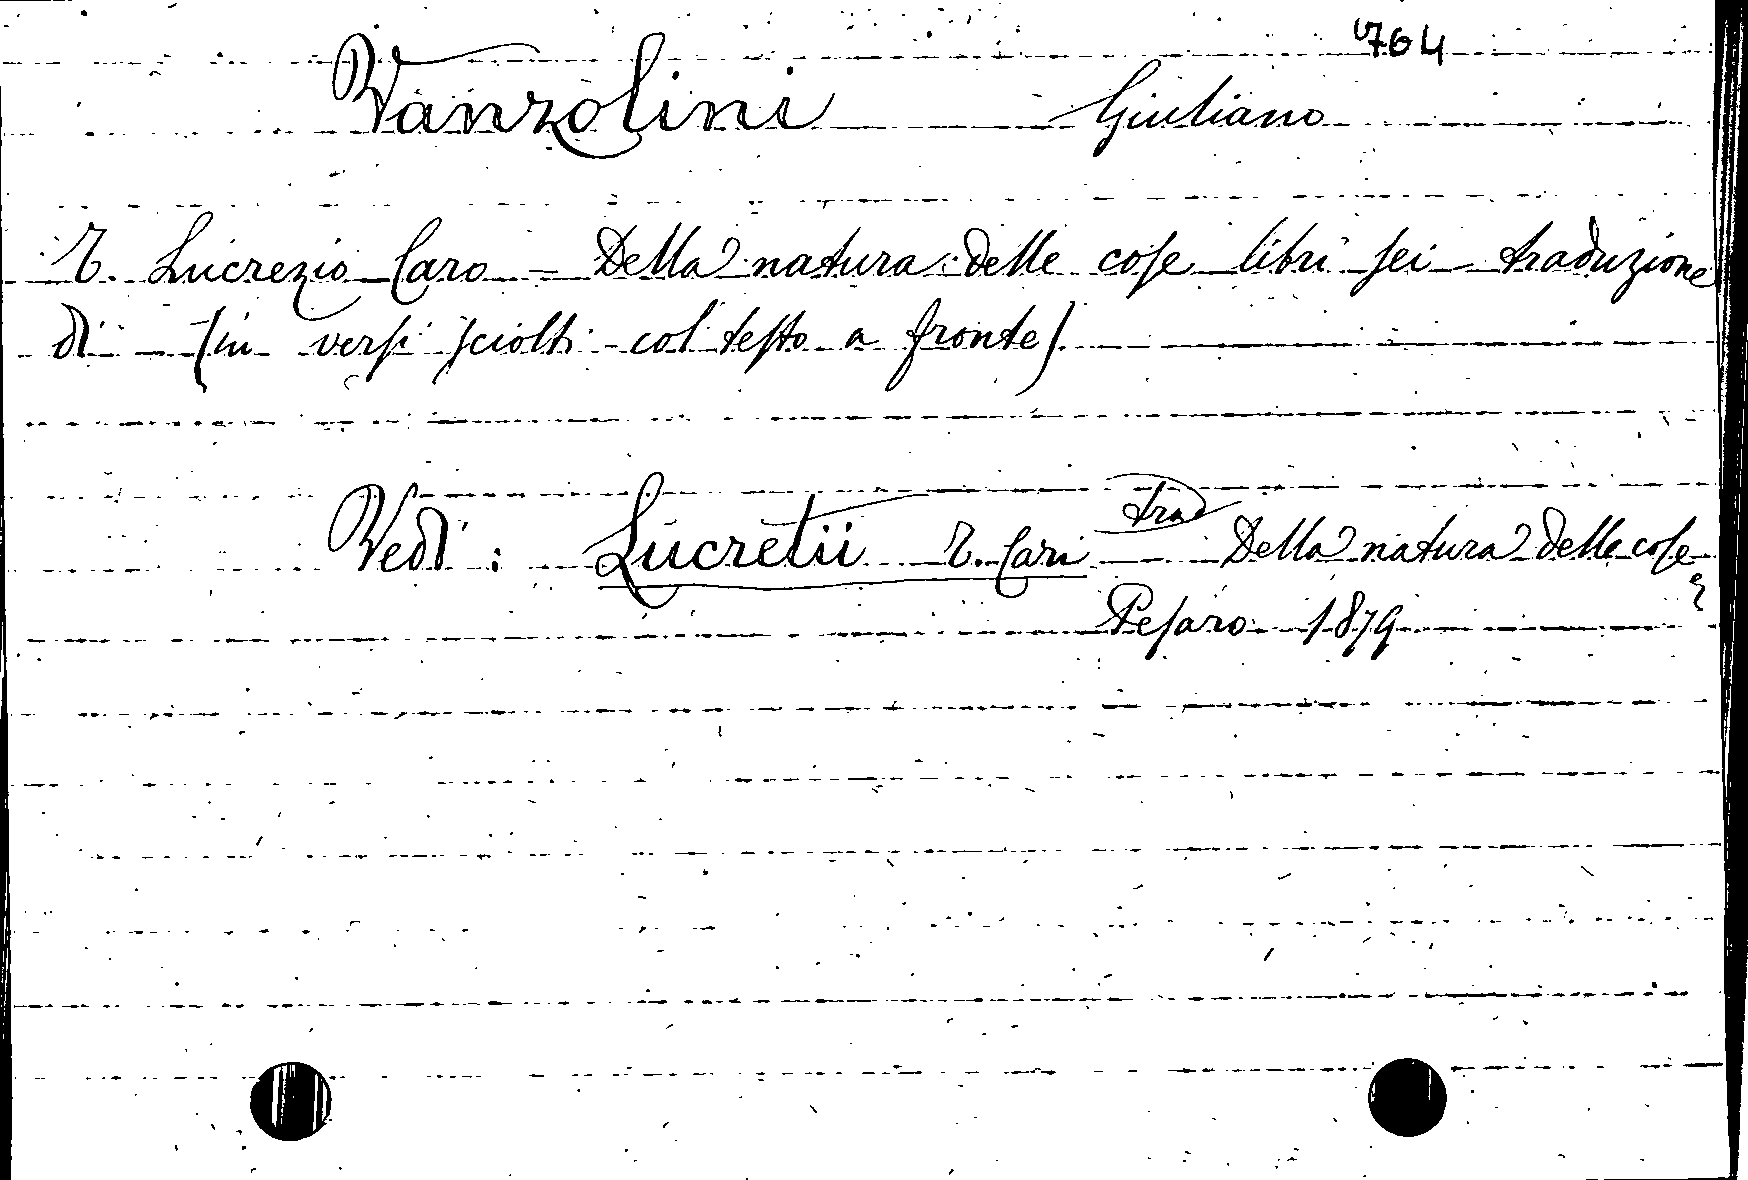 764
Vanzolini Giuliano
T. Lucrezio Caro - Della natura delle cose libri sei traduzione
di - (in versi sciolti col testo a fronte)
Vedi: Lucretii T. Cari trad Della natura delle cose
Pesaro 1879